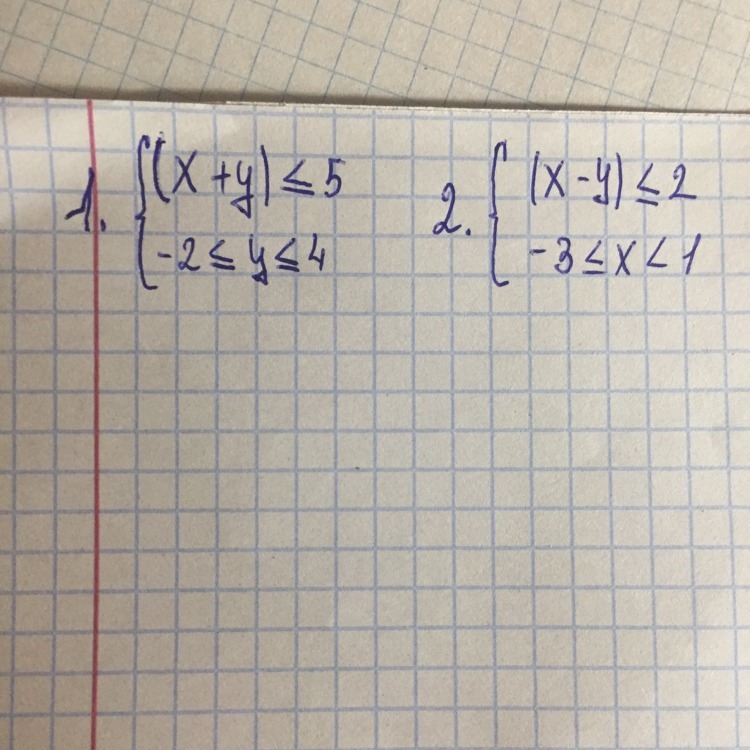 1. { (x + y) ≤ 5
-2 ≤ y ≤ 4
2. { (x - y) ≤ 2
-3 ≤ x < 1